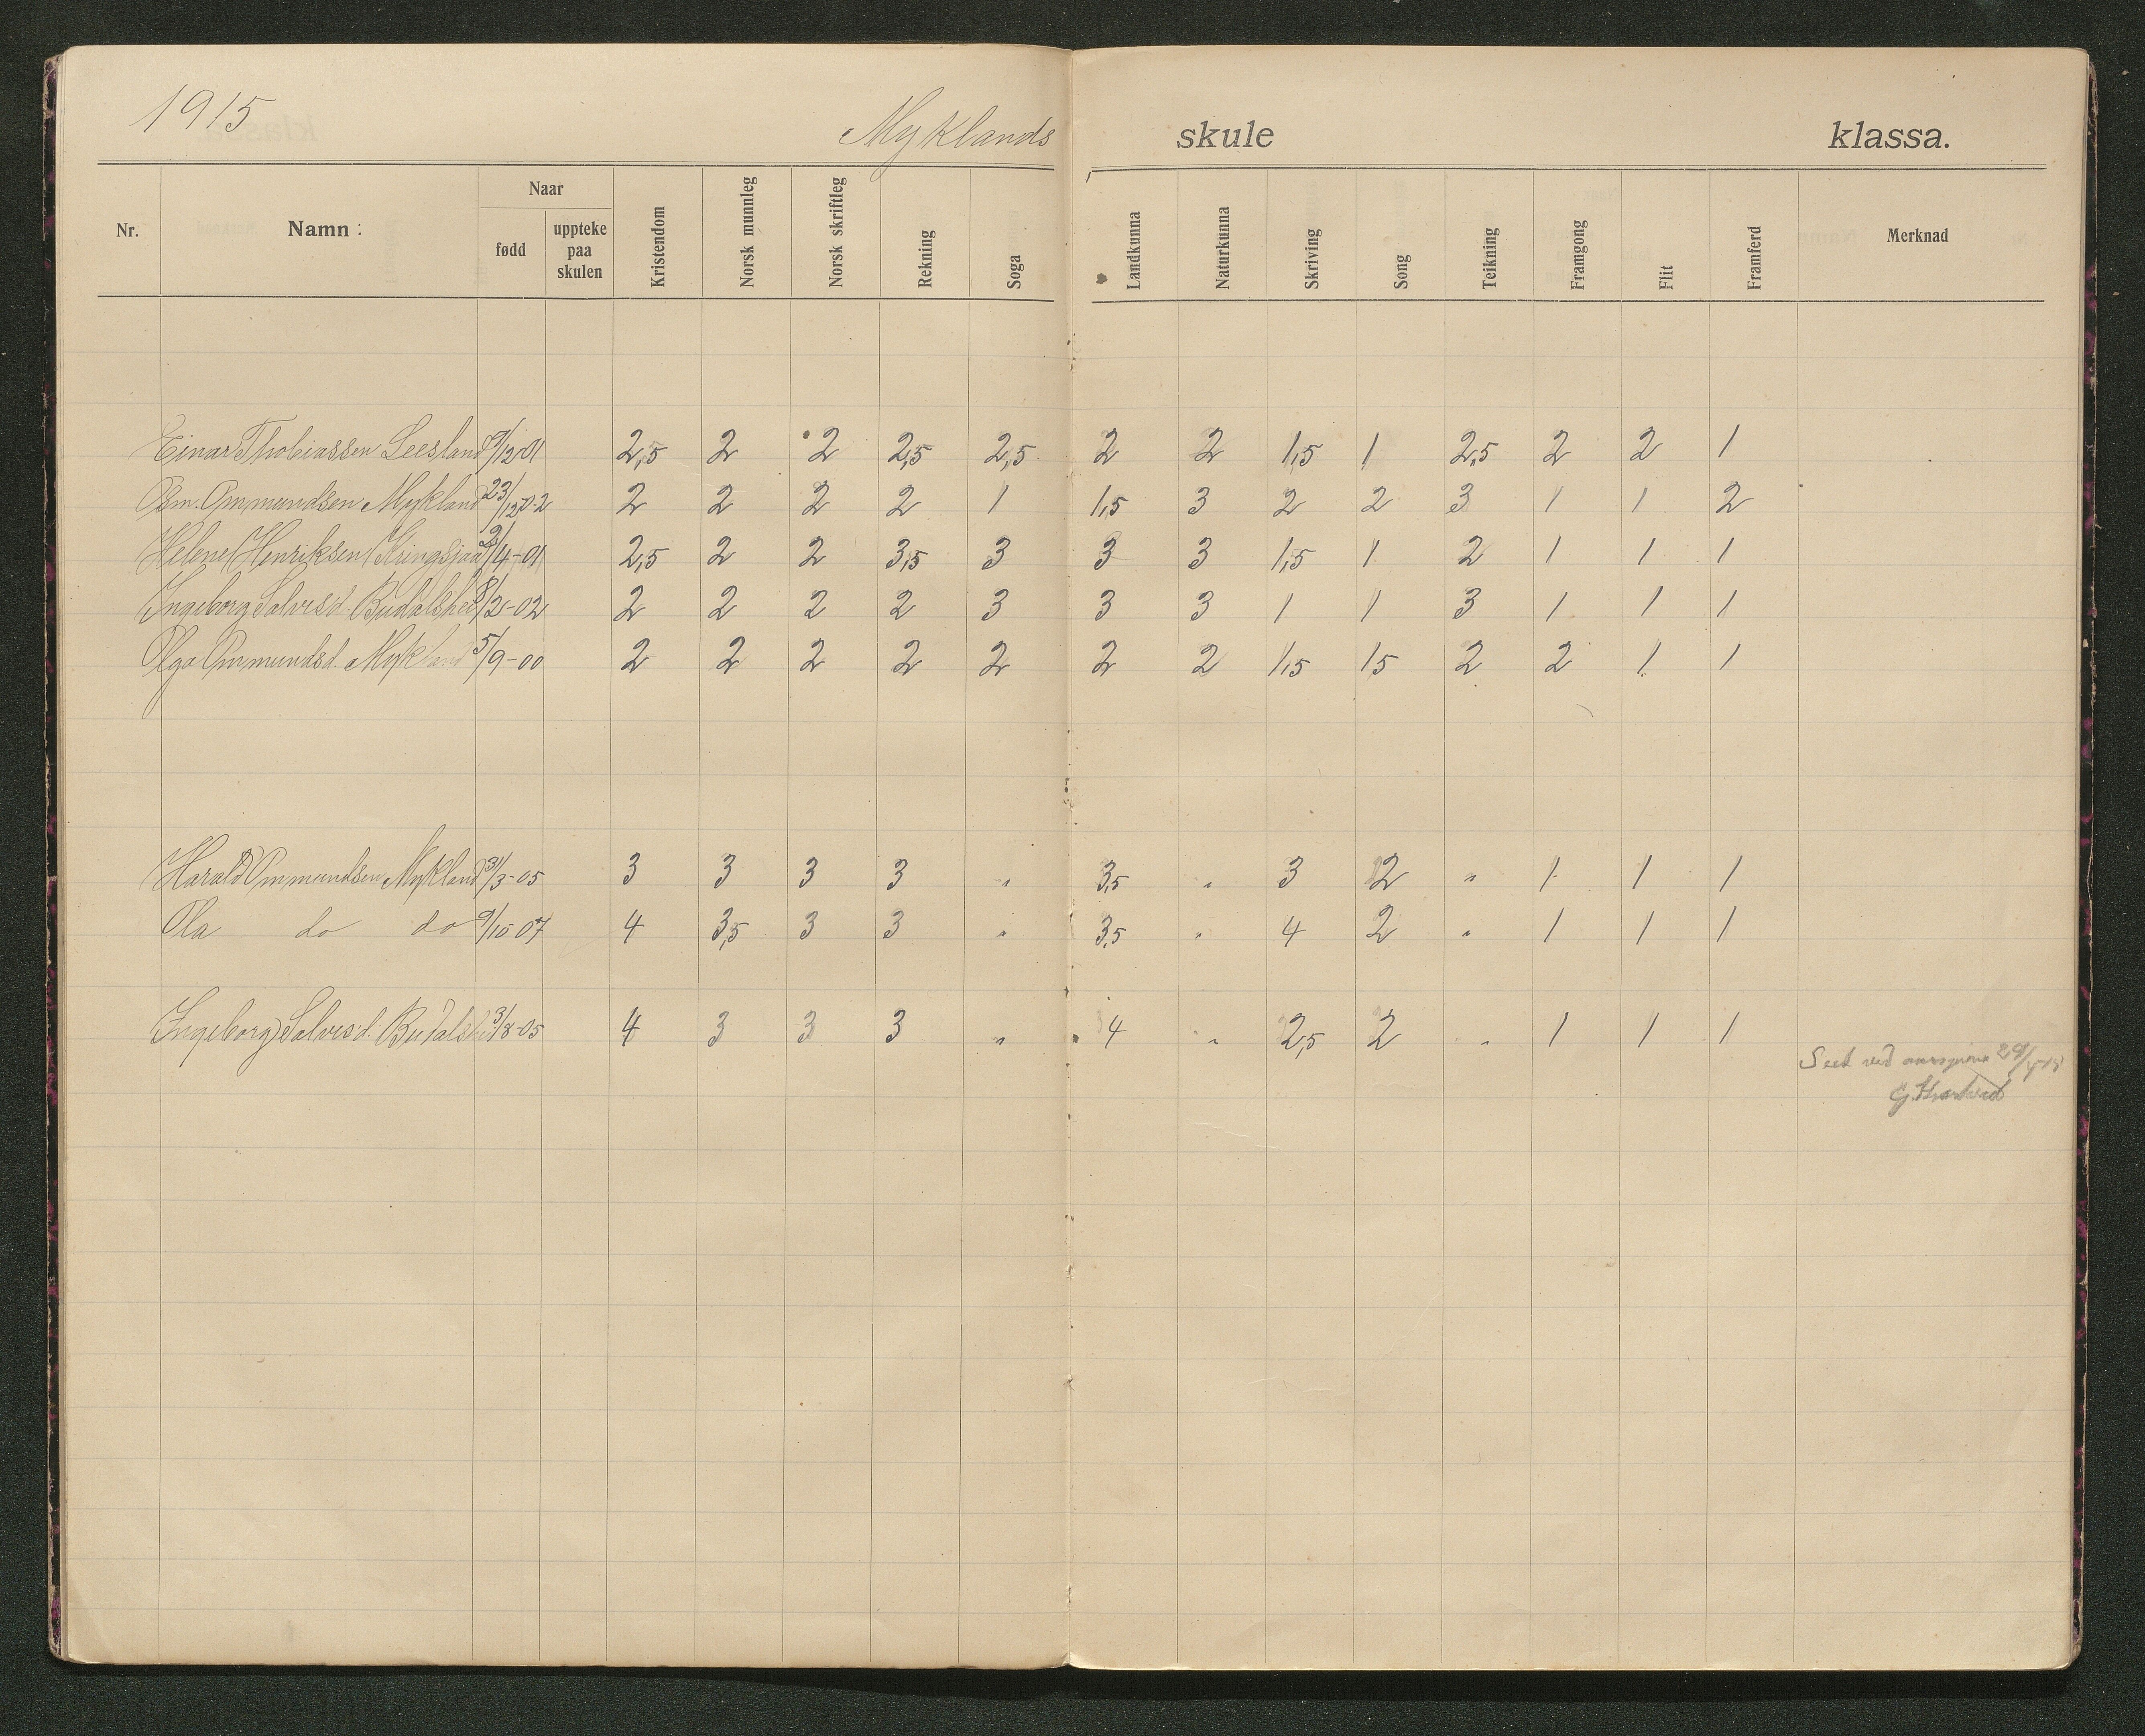 1915 Myklands skule klassa.
Nr. Namn: Naar fødd uppteke paa skulen Kristendom Norsk munnleg Norsk skriftleg Rekning Soga Landkunna Naturkunna Skriving Song Teikning Framgong Flit Framferd Merknad
Einar Thobiassen Leesland 9/12-01 2,5 2 2 2,5 2,5 2 2 1,5 1 2,5 2 2 1
Om. Ommundsen Mykland 23/12-02 2 2 2 2 1 1,5 3 2 2 3 1 1 2
Helene Henriksen Kringsjaa /4-01 2,5 2 2 3,5 3 3 3 1,5 1 2 1 1 1
Ingeborg Salvesd. 8/2-02 2 2 2 2 3 3 3 1 1 3 1 1 1
Olga Ommundsd. Mykland 5/9-00 2 2 2 2 2 2 2 1,5 1,5 2 2 1 1
Harald Ommundsen Mykland 31/3-05 3 3 3 3 " 3,5 " 3 2 " 1 1 1
Ola do do 9/10-07 4 3,5 3 3 " 3,5 " 4 2 " 1 1 1
Ingeborg Salvesd. 3/8-05 4 3 3 3 " 4 " 2,5 2 " 1 1 1
Seet ved